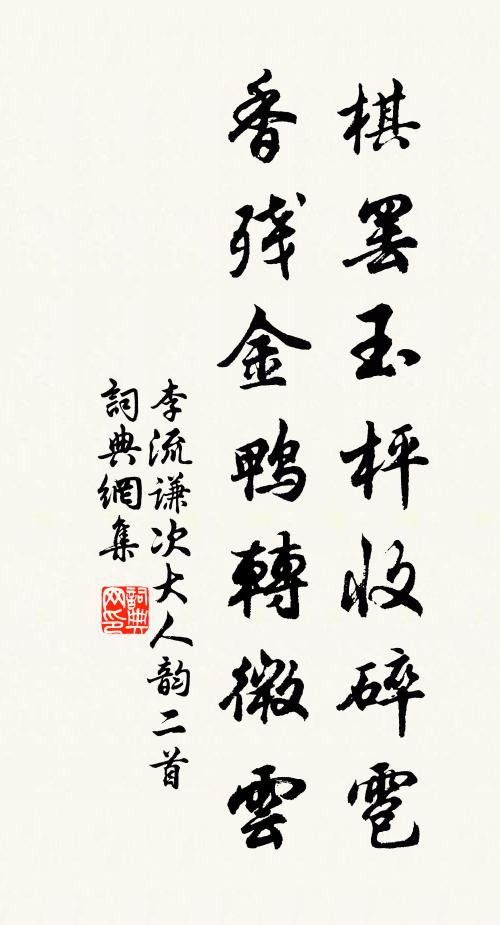 棋罢玉枰收碎雹
香残金鴨轉微雲
李流谦次大人韵二首
詞典網集
詞典网印